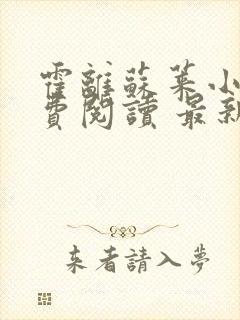 霍離蘇葉小
費閱讀 最新
来者請入夢